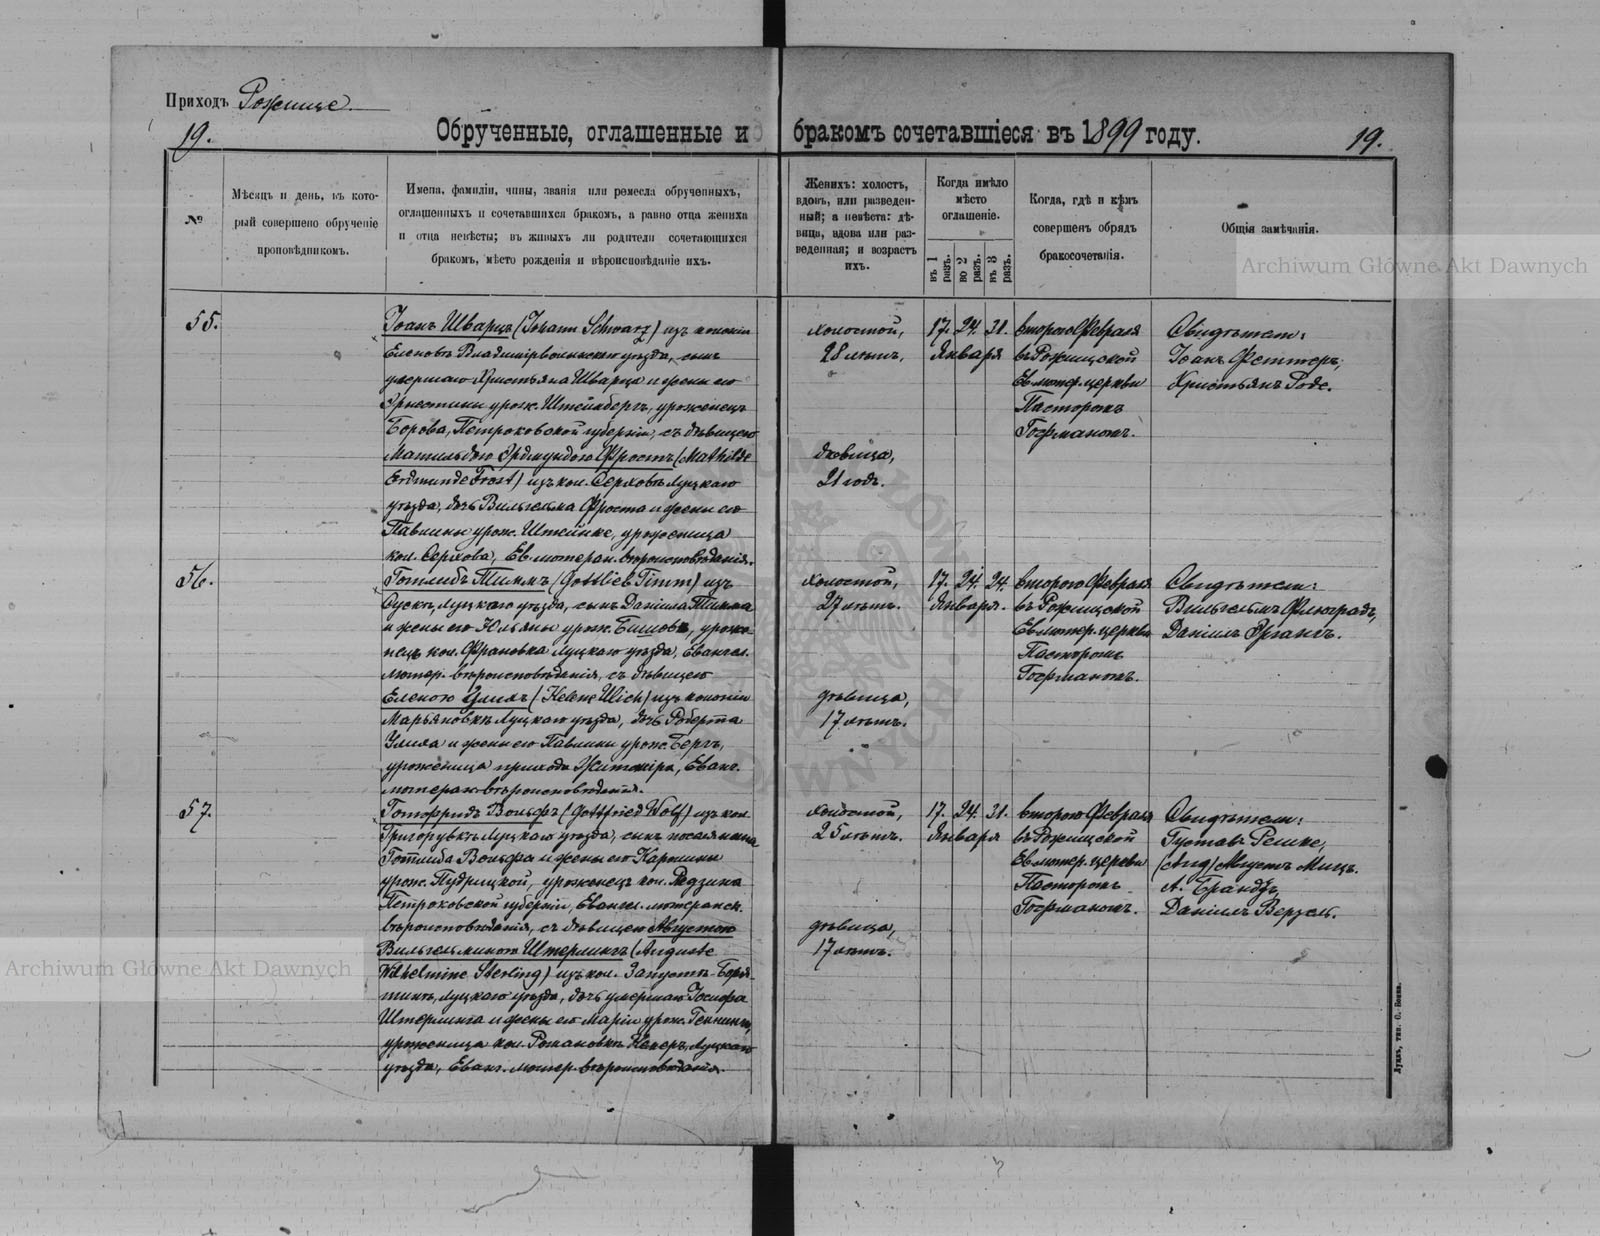 Приходъ Рожище.
19.
Обрученные, оглашенные и бракомъ сочетавшіеся въ 1899 году.
19.
№
Мѣсяцъ и день, въ кото-
рый совершено обрученіе
проповѣдникомъ.
Имена, фамиліи, чины, званія или ремесла обрученныхъ,
оглашенныхъ и сочетавшихся бракомъ, а равно отца жениха
и отца невѣсты; въ живыхъ ли родители сочетающихся
бракомъ, мѣсто рожденія и вѣроисповѣданіе ихъ.
Женихъ: холостъ,
вдовъ, или разведен-
ный; а невѣста: дѣ-
вица, вдова или раз-
веденная; и возрастъ
ихъ.
Когда имѣло
мѣсто
оглашеніе.
въ 1 разъ.
во 2 разъ.
въ 3 разъ.
Когда, гдѣ и кѣмъ
совершенъ обрядъ
бракосочетанія.
Общія замѣчанія.
Archiwum Główne Akt Dawnych
55.
Іоанъ Шварцъ (Johann Schwarz) изъ колоніи
Еленовъ Владимірволынскаго уѣзда, сынъ
умершаго Христьяна Шварца и жены его
Эрнестины урож. Штейнбергъ, уроженецъ
Борова, Петроковской губерніи, съ дѣвицею
Матильдою Эрдмундою Фростъ (Mathilde
Erdmunde Frost) изъ кол. Серховъ Луцкаго
уѣзда, дочь Вильгельма Фроста и жены его
Павлины урож. Штейнке, уроженица
кол. Серхова, Ев. лютеран. вѣроисповѣданія.
холостой,
28 лѣтъ.
дѣвица,
21 годъ.
17. 24. 31.
Января
второго Февраля
въ Рожищской
Ев. лютер. церкви
Пасторомъ
Гофманомъ.
Свидѣтели:
Іоанъ Феттеръ,
Христьянъ Роде.
56.
Готлибъ Тиммъ (Gottlieb Timm) изъ
Луцкаго уѣзда, сынъ Даніила Тимма
и жены его Юльяны урож. уроже-
нецъ кол. Луцкаго уѣзда, Евангел.
лютер. вѣроисповѣданія, съ дѣвицею
Еленою Улихъ (Helene Ulich) изъ колоніи
Марьяновкѣ Луцкаго уѣзда, дочь Роберта
Улиха и жены его Павлины урож. Бергъ,
уроженица прихода Житоміра, Еванг.
лютеран. вѣроисповѣданія.
холостой,
27 лѣтъ.
дѣвица,
17 лѣтъ.
17. 24. 24.
Января.
второго Февраля
въ Рожищской
Ев. лютер. церкви
Пасторомъ
Гофманомъ.
Свидѣтели:
Вильгельмъ Флюградъ,
Даніилъ
57.
Готфридъ Вольфъ (Gottfried Wolf) изъ кол.
Григорувкѣ Луцкаго уѣзда, сынъ поселянина
Готлиба Вольфа и жены его Каролины
урож. Пудрицкой, уроженецъ кол.
Петроковской губерніи, Евангел. лютеранск.
вѣроисповѣданія, съ дѣвицею Августою
Вильгельминою Штерлингъ (Auguste
Wilhelmine Sterling) изъ кол. Запустъ-Боря-
тинъ, Луцкаго уѣзда, дочь умершаго Іосифа
Штерлинга и жены его Маріи урож. Геннингъ,
уроженица кол. Романовкѣ Луцкаго
уѣзда, Еванг. лютер. вѣроисповѣданія.
холостой,
25 лѣтъ.
дѣвица,
17 лѣтъ.
17. 24. 31.
Января
второго Февраля
въ Рожищской
Ев. лютер. церкви
Пасторомъ
Гофманомъ.
Свидѣтели:
Густавъ Решке,
Августъ Мицъ.
А. Брандъ,
Даніилъ
Archiwum Główne Akt Dawnych
Луцкъ, тип. С. Бонка.